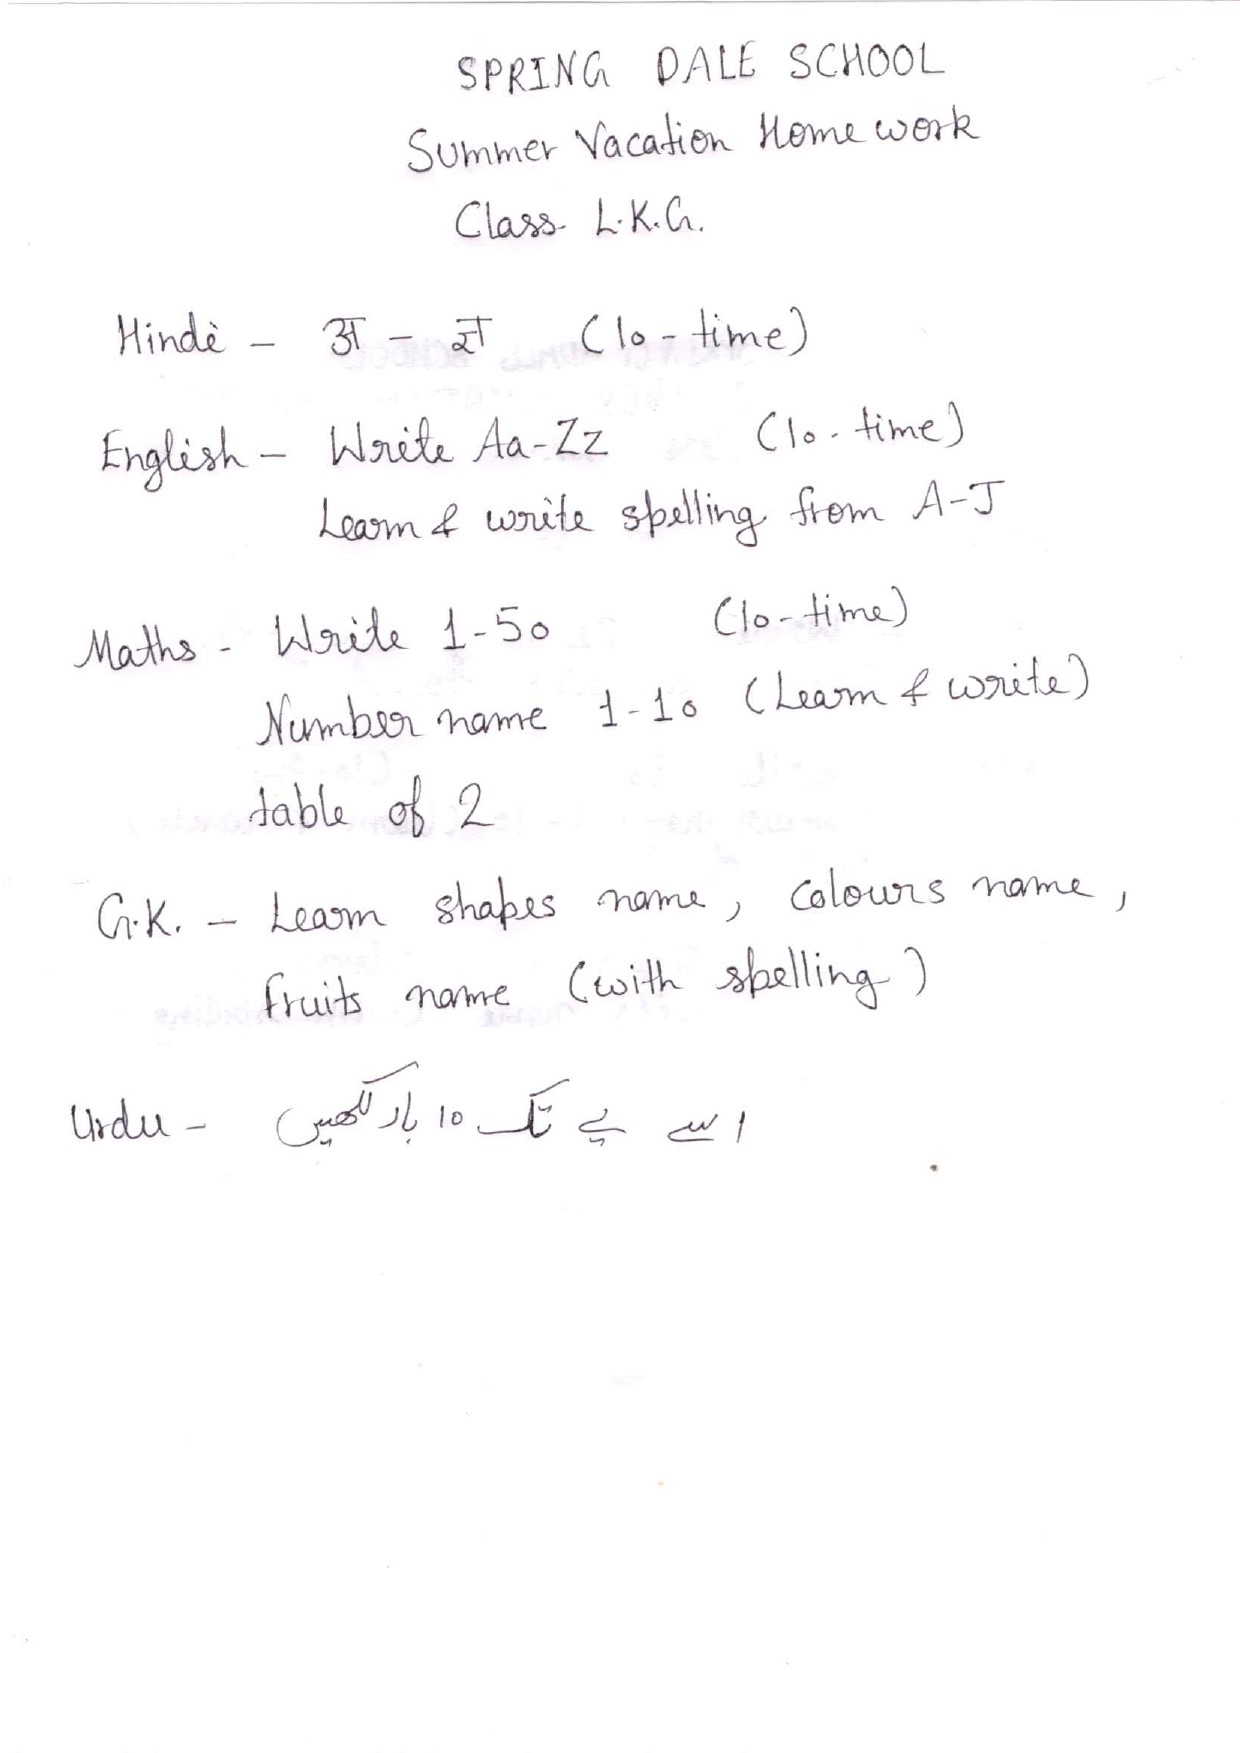 SPRING DALE SCHOOL
Summer Vacation Home work
Class L.K.G.
Hindi - अ - ज्ञ (10 - time)
English - Write Aa-Zz (10 - time)
Learn & write spelling from A-J
Maths - Write 1-50 (10-time)
Number name 1-10 (Learn & write)
table of 2
G.K. - Learn shapes name, colours name,
fruits name (with spelling)
Urdu - ا سے ے تک 10 بار لکھیں